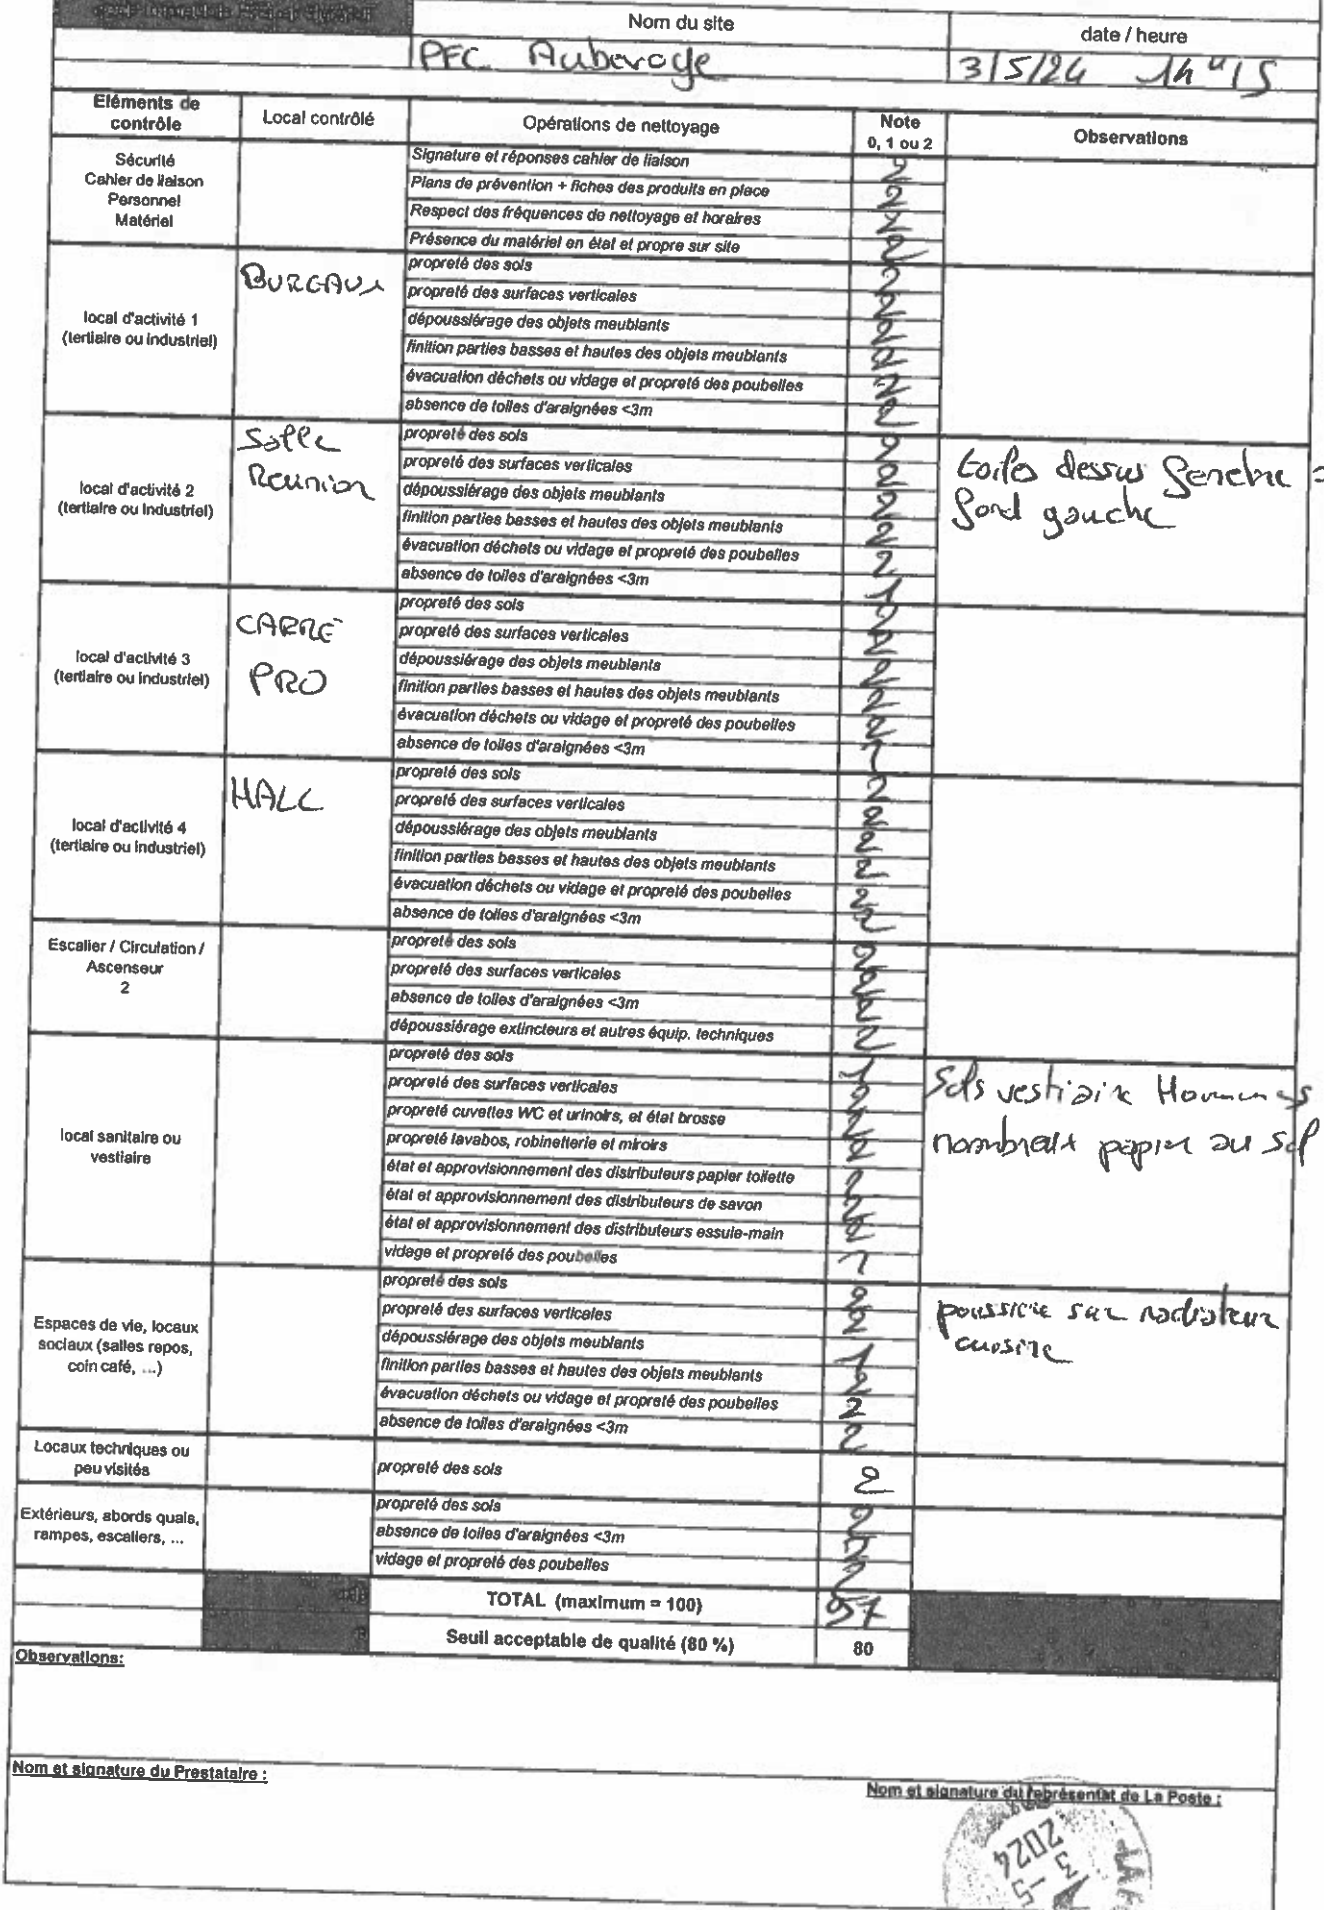 Nom du site
date / heure
PFC Auberoye
3/5/24 14 H 15
Eléments de contrôle
Local contrôlé
Opérations de nettoyage
Note
0, 1 ou 2
Observations
Sécurité
Cahier de liaison
Personnel
Matériel
Signature et réponses cahier de liaison 2
Plans de prévention + fiches des produits en place 2
Respect des fréquences de nettoyage et horaires 2
Présence du matériel en état et propre sur site 2
local d'activité 1
(tertiaire ou industriel)
BUREAUX
propreté des sols 2
propreté des surfaces verticales 2
dépoussiérage des objets meublants 2
finition parties basses et hautes des objets meublants 2
évacuation déchets ou vidage et propreté des poubelles 2
absence de toiles d'araignées <3m 2
local d'activité 2
(tertiaire ou industriel)
Salle
Reunion
propreté des sols 2
propreté des surfaces verticales 2
dépoussiérage des objets meublants 2
finition parties basses et hautes des objets meublants 2
évacuation déchets ou vidage et propreté des poubelles 2
absence de toiles d'araignées <3m 1
toiles dessus fenetre
fond gauche
local d'activité 3
(tertiaire ou industriel)
CARRE
PRO
propreté des sols 2
propreté des surfaces verticales 2
dépoussiérage des objets meublants 2
finition parties basses et hautes des objets meublants 2
évacuation déchets ou vidage et propreté des poubelles 2
absence de toiles d'araignées <3m 1
local d'activité 4
(tertiaire ou industriel)
HALL
propreté des sols 2
propreté des surfaces verticales 2
dépoussiérage des objets meublants 2
finition parties basses et hautes des objets meublants 2
évacuation déchets ou vidage et propreté des poubelles 2
absence de toiles d'araignées <3m 2
Escalier / Circulation /
Ascenseur
2
propreté des sols 2
propreté des surfaces verticales 2
absence de toiles d'araignées <3m 2
dépoussiérage extincteurs et autres équip. techniques 2
local sanitaire ou
vestiaire
propreté des sols 1
propreté des surfaces verticales 2
propreté cuvettes WC et urinoirs, et état brosse 2
propreté lavabos, robinetterie et miroirs 2
état et approvisionnement des distributeurs papier toilette 2
état et approvisionnement des distributeurs de savon 2
état et approvisionnement des distributeurs essuie-main 2
vidage et propreté des poubelles 1
Sols vestiaire Hommes
nombreux papier au sol
Espaces de vie, locaux
sociaux (salles repos,
coin café, ...)
propreté des sols 2
propreté des surfaces verticales 2
dépoussiérage des objets meublants 1
finition parties basses et hautes des objets meublants 2
évacuation déchets ou vidage et propreté des poubelles 2
absence de toiles d'araignées <3m 2
poussiere sur radiateur
cuisine
Locaux techniques ou
peu visités
propreté des sols 2
Extérieurs, abords quais,
rampes, escaliers, ...
propreté des sols 2
absence de toiles d'araignées <3m 2
vidage et propreté des poubelles 2
TOTAL (maximum = 100) 97
Seuil acceptable de qualité (80 %) 80
Observations:
Nom et signature du Prestataire :
Nom et signature du représentat de La Poste :
2024
3 -5